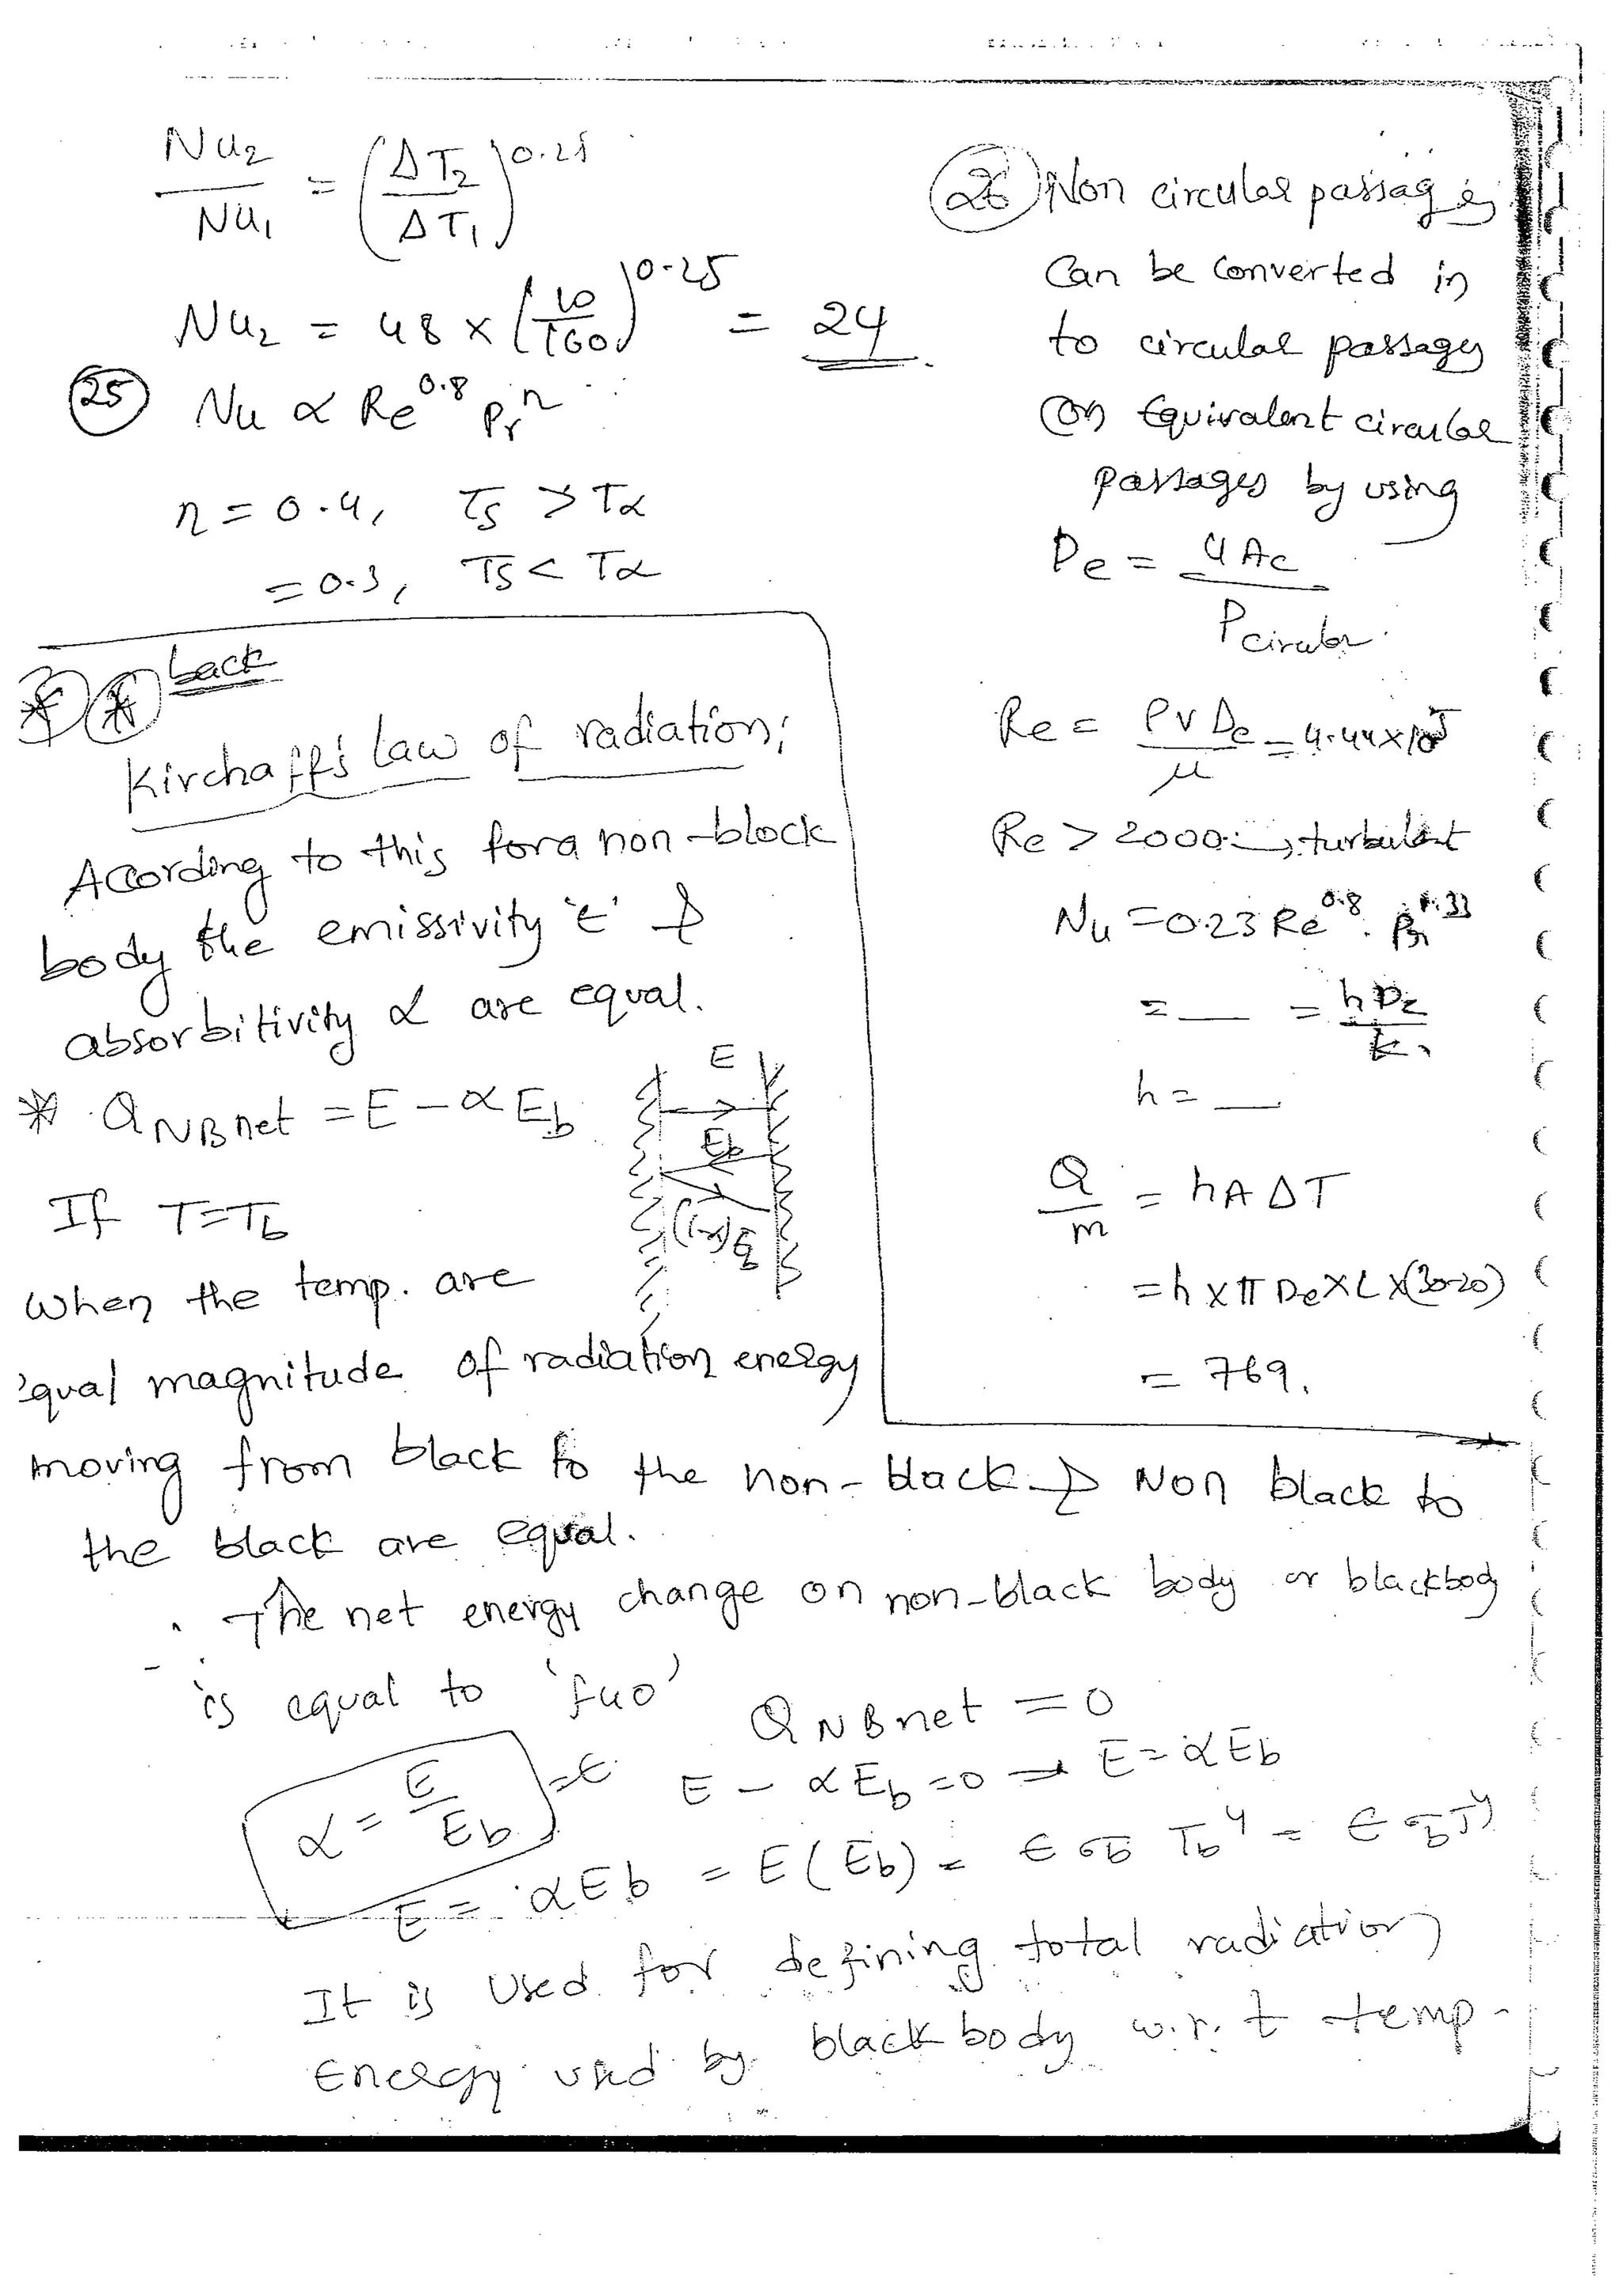 Nu₂/Nu₁ = (ΔT₂/ΔT₁)^0.25
Nu₂ = 48 × (10/160)^0.25 = 24.
(25) Nu ∝ Re^0.8 Pr^n
n = 0.4, Ts > T∝
= 0.3, Ts < T∝
(26) Non circular passages
Can be Converted in
to circular passages
(or) Equivalent circular
passages by using
De = 4Ac/Pcircular.
Re = ρVDe/μ = 4.44×10^5
Re > 2000 → turbulent
Nu = 0.23 Re^0.8 . Pr^0.33
= __ = hDe/k.
h = __
Q/m = hAΔT
= h × π De × L × (30-20)
= 769.
back
Kirchaff's Law of radiation;
Acording to this for a non-block
body the emissivity 'ϵ' &
absorbitivity α are equal.
* QNBnet = E - αEb
E
Eb
(1-α)Eb
If T = Tb
When the temp. are
equal magnitude of radiation energy
moving from black to the non-black & Non black to
the black are equal.
∴ The net energy change on non-black body or blackbody
is equal to
QNBnet = 0
α = E/Eb = ϵ
E - αEb = 0 → E = αEb
E = αEb = E(Eb) = ϵ σb Tb⁴ = ϵ σb T⁴
It is Used for defining total radiation
Energy used by black body w.r.t temp.